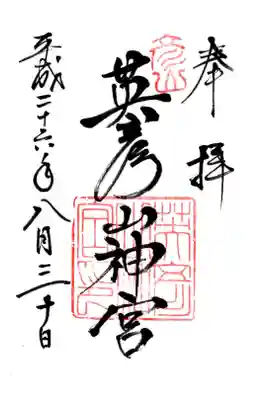 奉拝
英彦山神宮
平成二十六年八月三十日